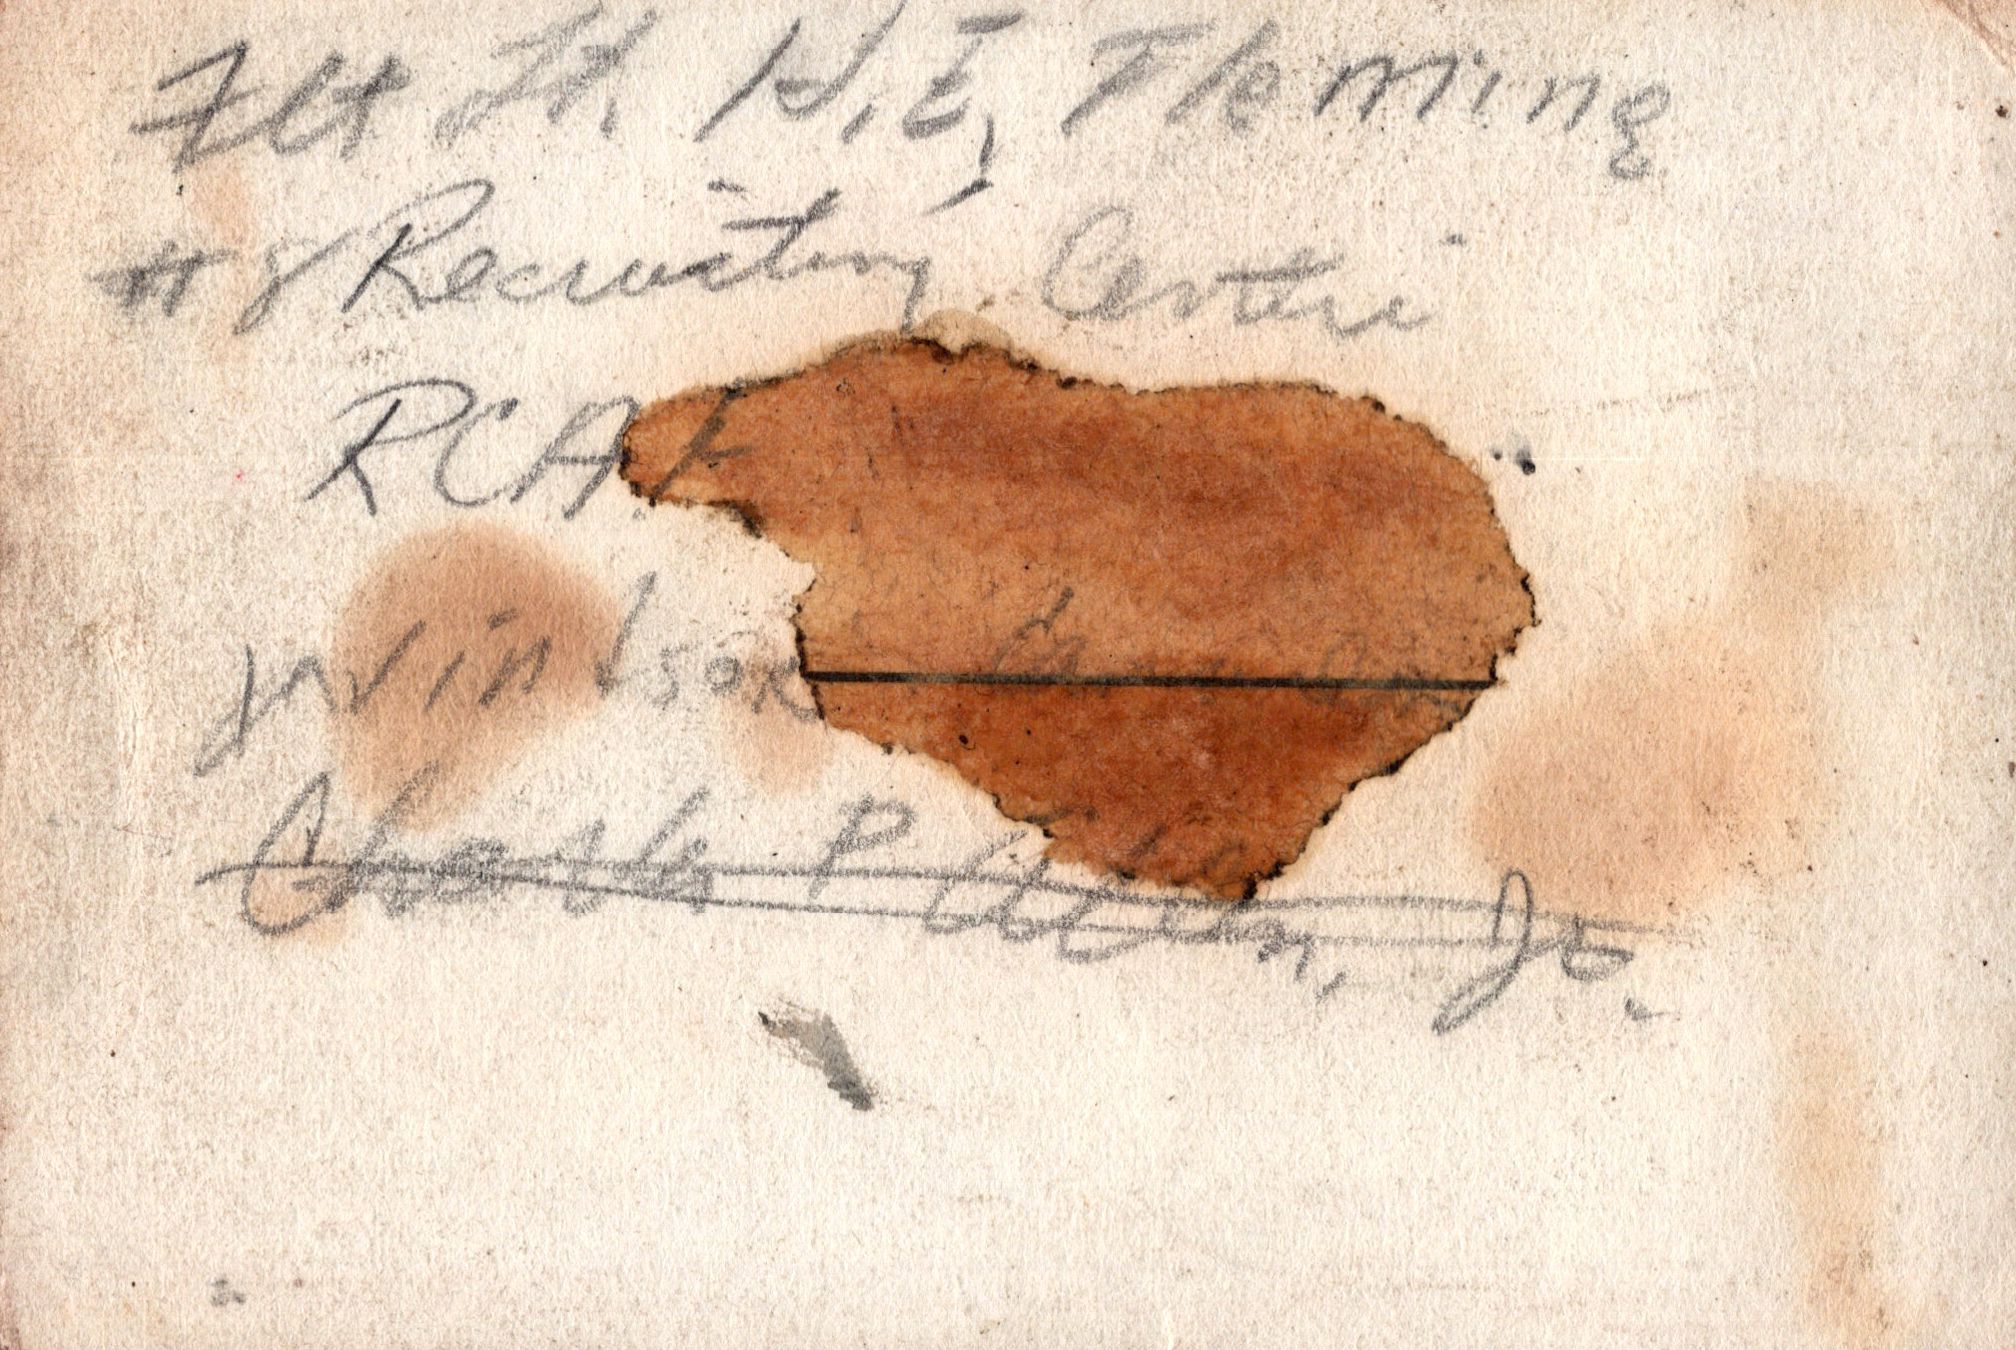 Flt Lt. H.E, Fleming
#8 Recruiting Centre
RCAF
Windsor
P Jr.